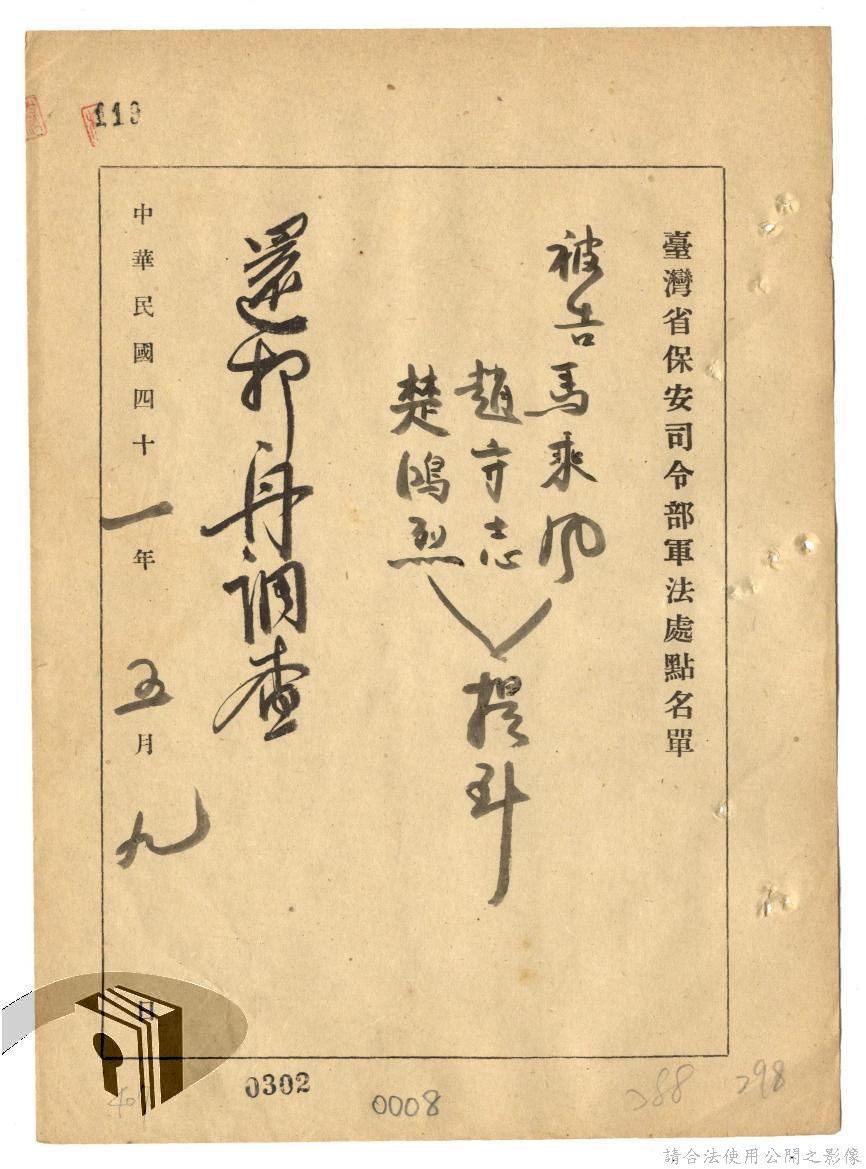 119
臺灣省保安司令部軍法處點名單
被告馬乘風
趙守志
楚鴻烈
提到
還押再調查
中華民國四十一年五月九日
0302
0008
288
298
請合法使用公開之影像